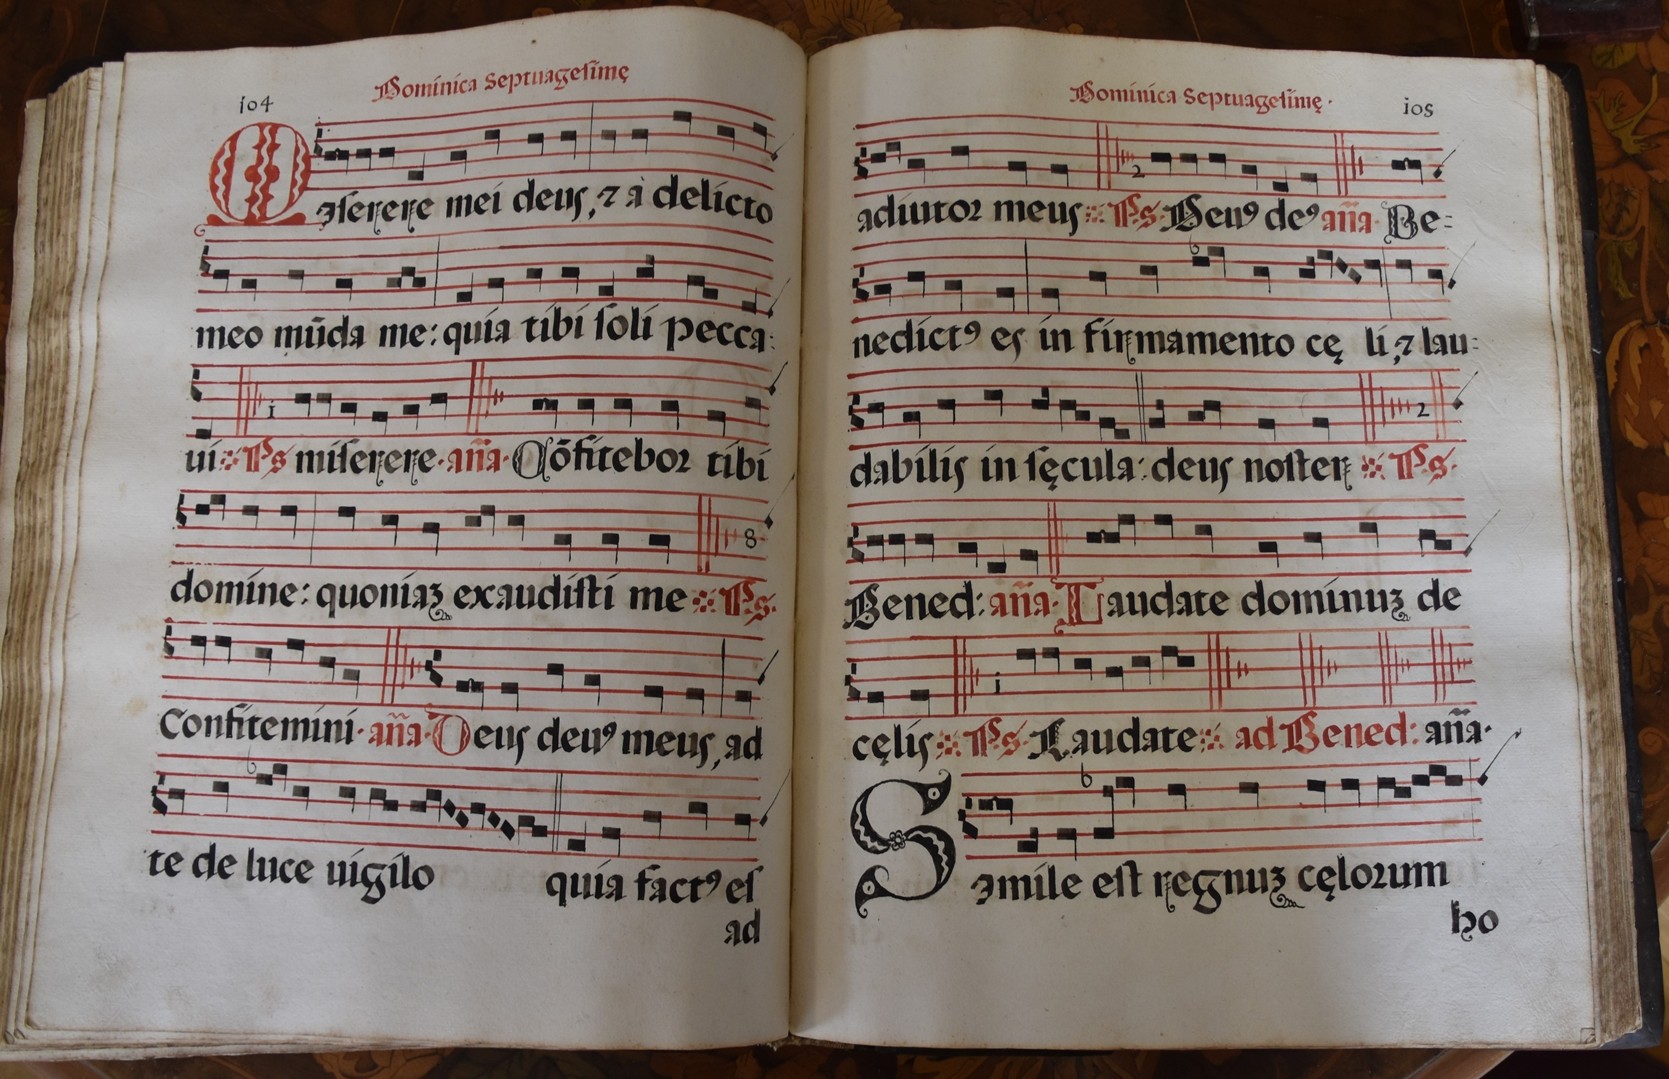 104
Dominica Septuagesimę
Miserere mei deus, ⁊ à delicto
meo mūda me: quia tibi soli pecca-
ui Ps miserere. aña. Cōfitebor tibi
domine: quoniaʒ exaudisti me Ps.
Confitemini. aña. Deus deuꝰ meus, ad
te de luce uigilo quia factꝰ es
ad
Dominica Septuagesimę.
105
adiutor meus Ps. Deuꝰ deꝰ aña. Be-
nedictꝰ es in firmamento cę li, ⁊ lau-
dabilis in sęcula: deus noster Ps.
Bened: aña. Laudate dominuʒ de
cęlis Ps. Laudate ad Bened: aña.
Simile est regnuʒ cęlorum
ho